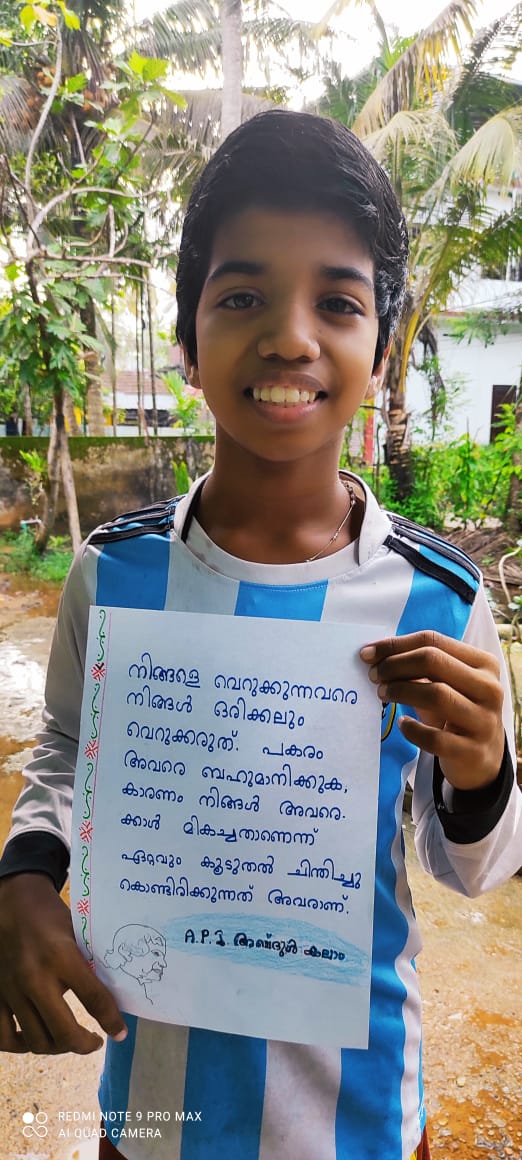 നിങ്ങളെ വെറുക്കുന്നവരെ
നിങ്ങൾ ഒരിക്കലും
വെറുക്കരുത്. പകരം
അവരെ ബഹുമാനിക്കുക,
കാരണം നിങ്ങൾ അവരെ-
ക്കാൾ മികച്ചതാണെന്ന്
ഏറ്റവും കൂടുതൽ ചിന്തിച്ചു
കൊണ്ടിരിക്കുന്നത് അവരാണ്.
A.P.J അബ്ദുൾ കലാം
REDMI NOTE 9 PRO MAX
AI QUAD CAMERA